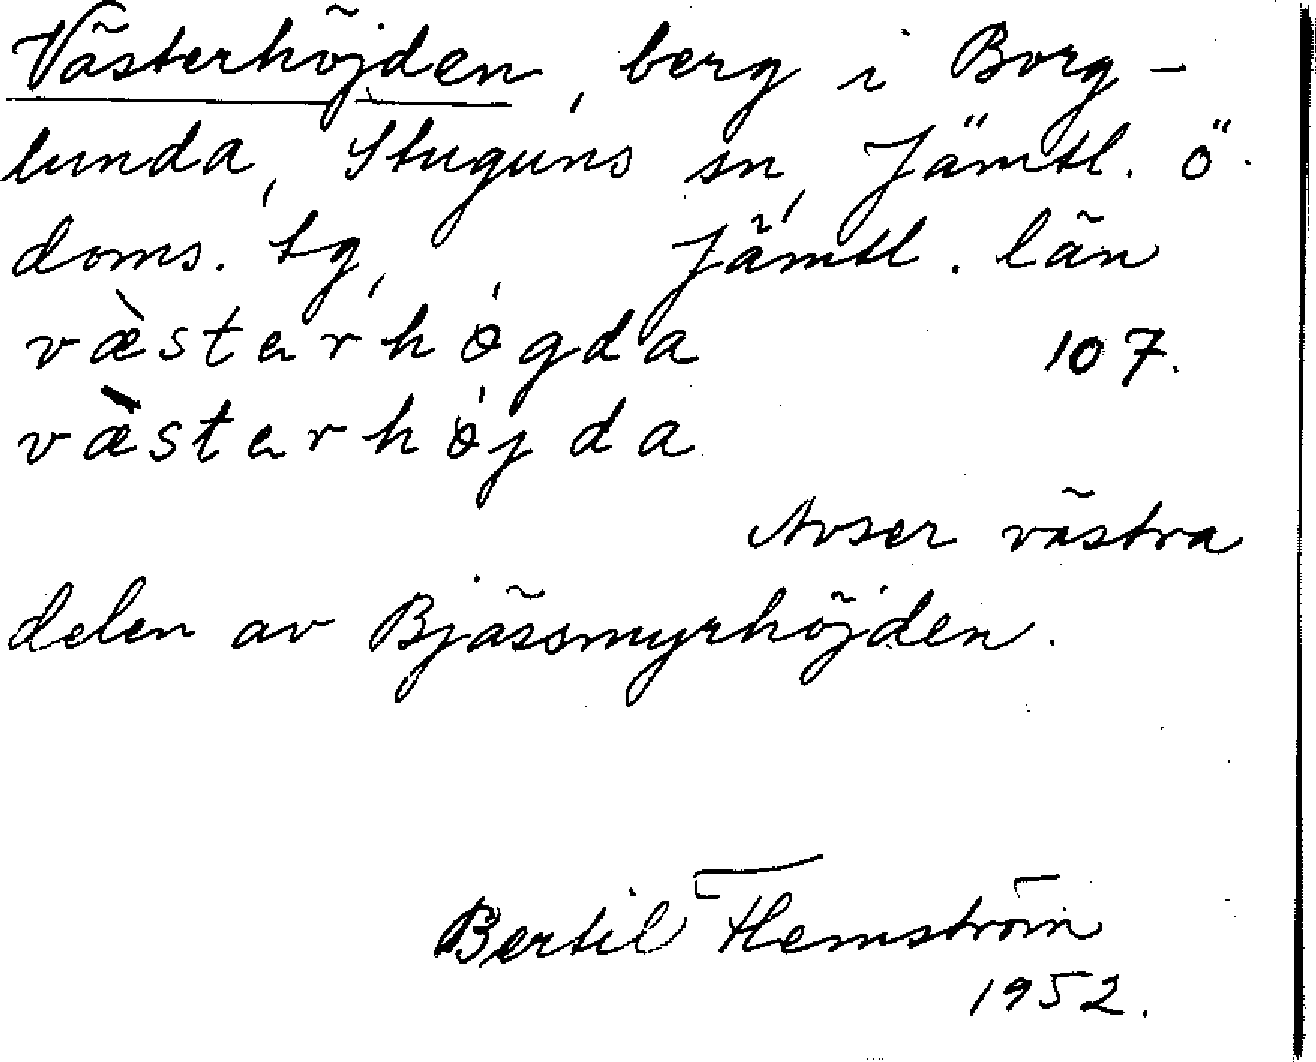 Västerhöjden, berg i Borg-
lunda, Stuguns sn, Jämtl. ö.
doms. tg, Jämtl. län
væ̀starhǿgda 107.
væ̀starhǿjda
Avser västra
delen av Bjässmyrhöjden.
Bertil Flemström
1952.